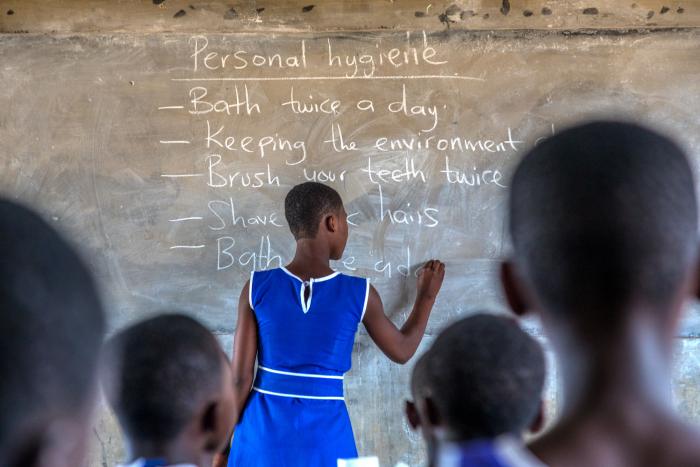 Personal hygiene
- Bath twice a day.
- Keeping the environment
- Brush your teeth twice
- Shave hairs
- Bath a